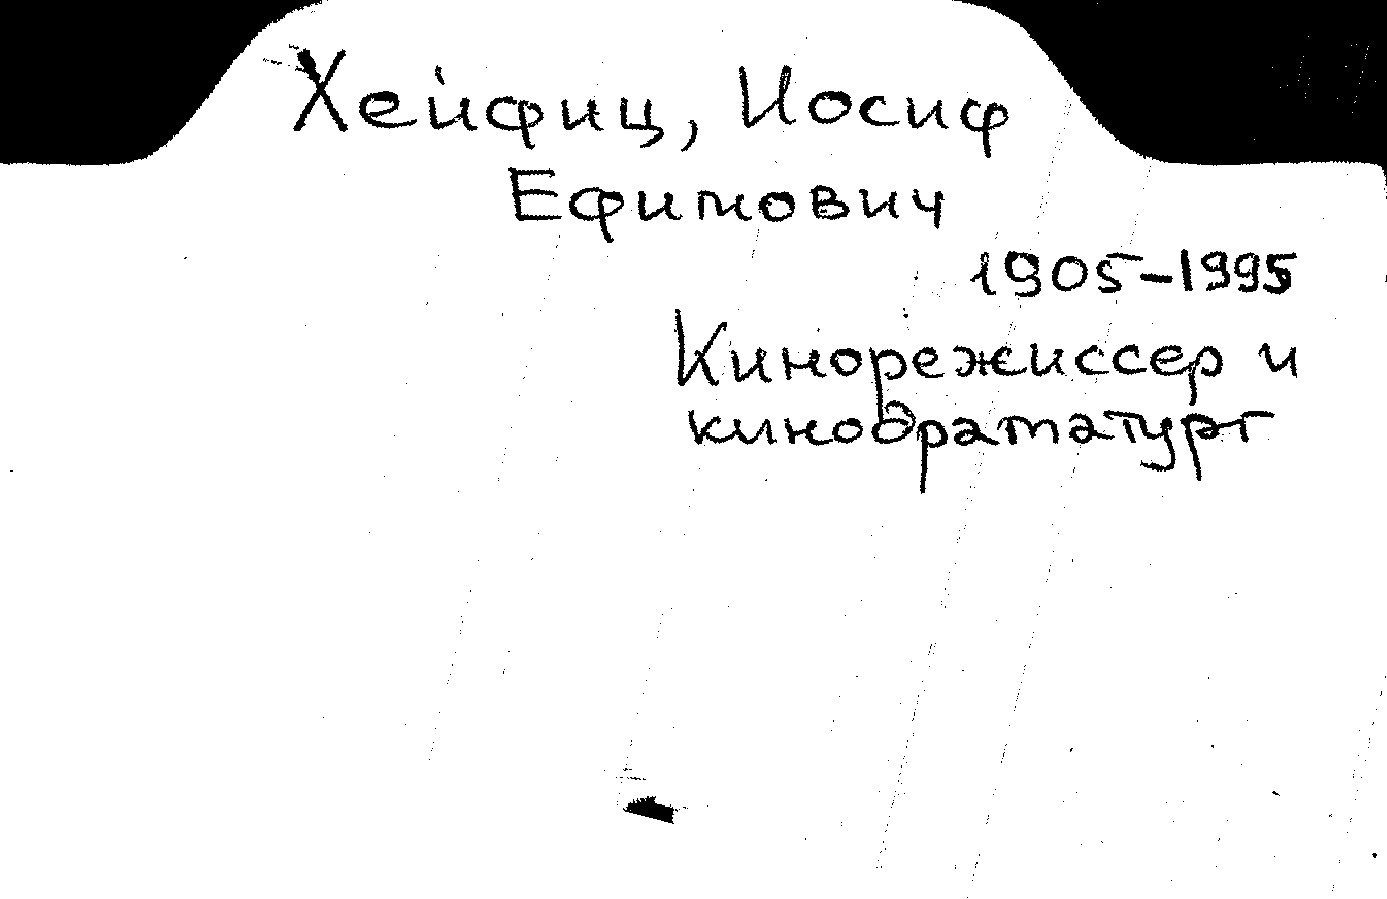 Хейфиц, Иосиф
Ефимович
1905-1995
Кинорежиссер и
кинодраматург